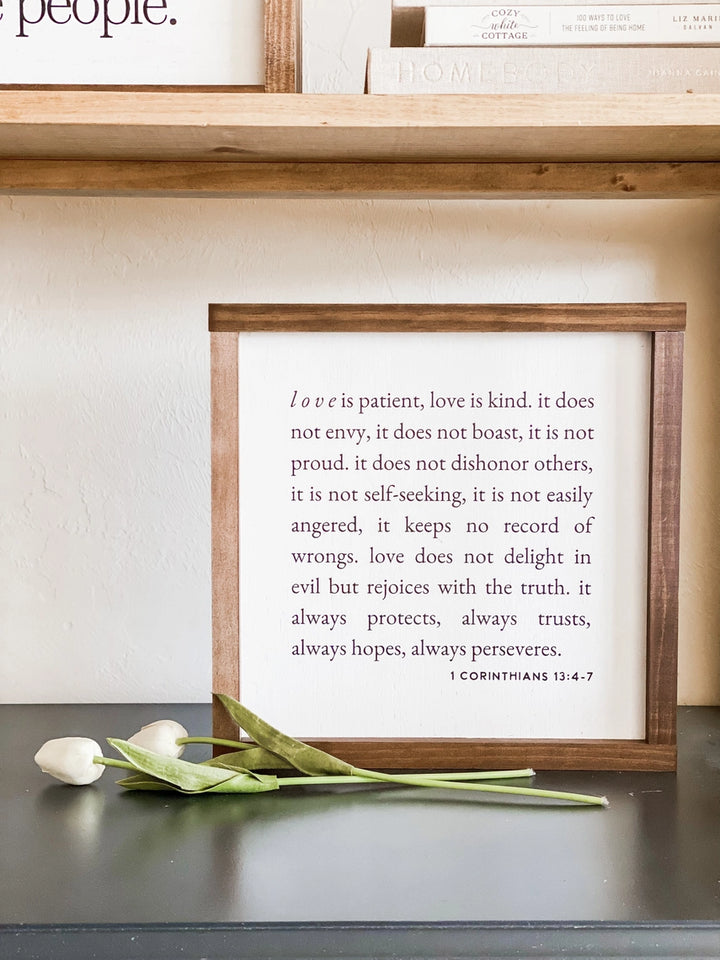 people.
COZY
white
COTTAGE
100 WAYS TO LOVE
THE FEELING OF BEING HOME
LIZ MARIE
GALVAN
HOMEBODY
JOANNA GAINES
love is patient, love is kind. it does
not envy, it does not boast, it is not
proud. it does not dishonor others,
it is not self-seeking, it is not easily
angered, it keeps no record of
wrongs. love does not delight in
evil but rejoices with the truth. it
always protects, always trusts,
always hopes, always perseveres.
1 CORINTHIANS 13:4-7